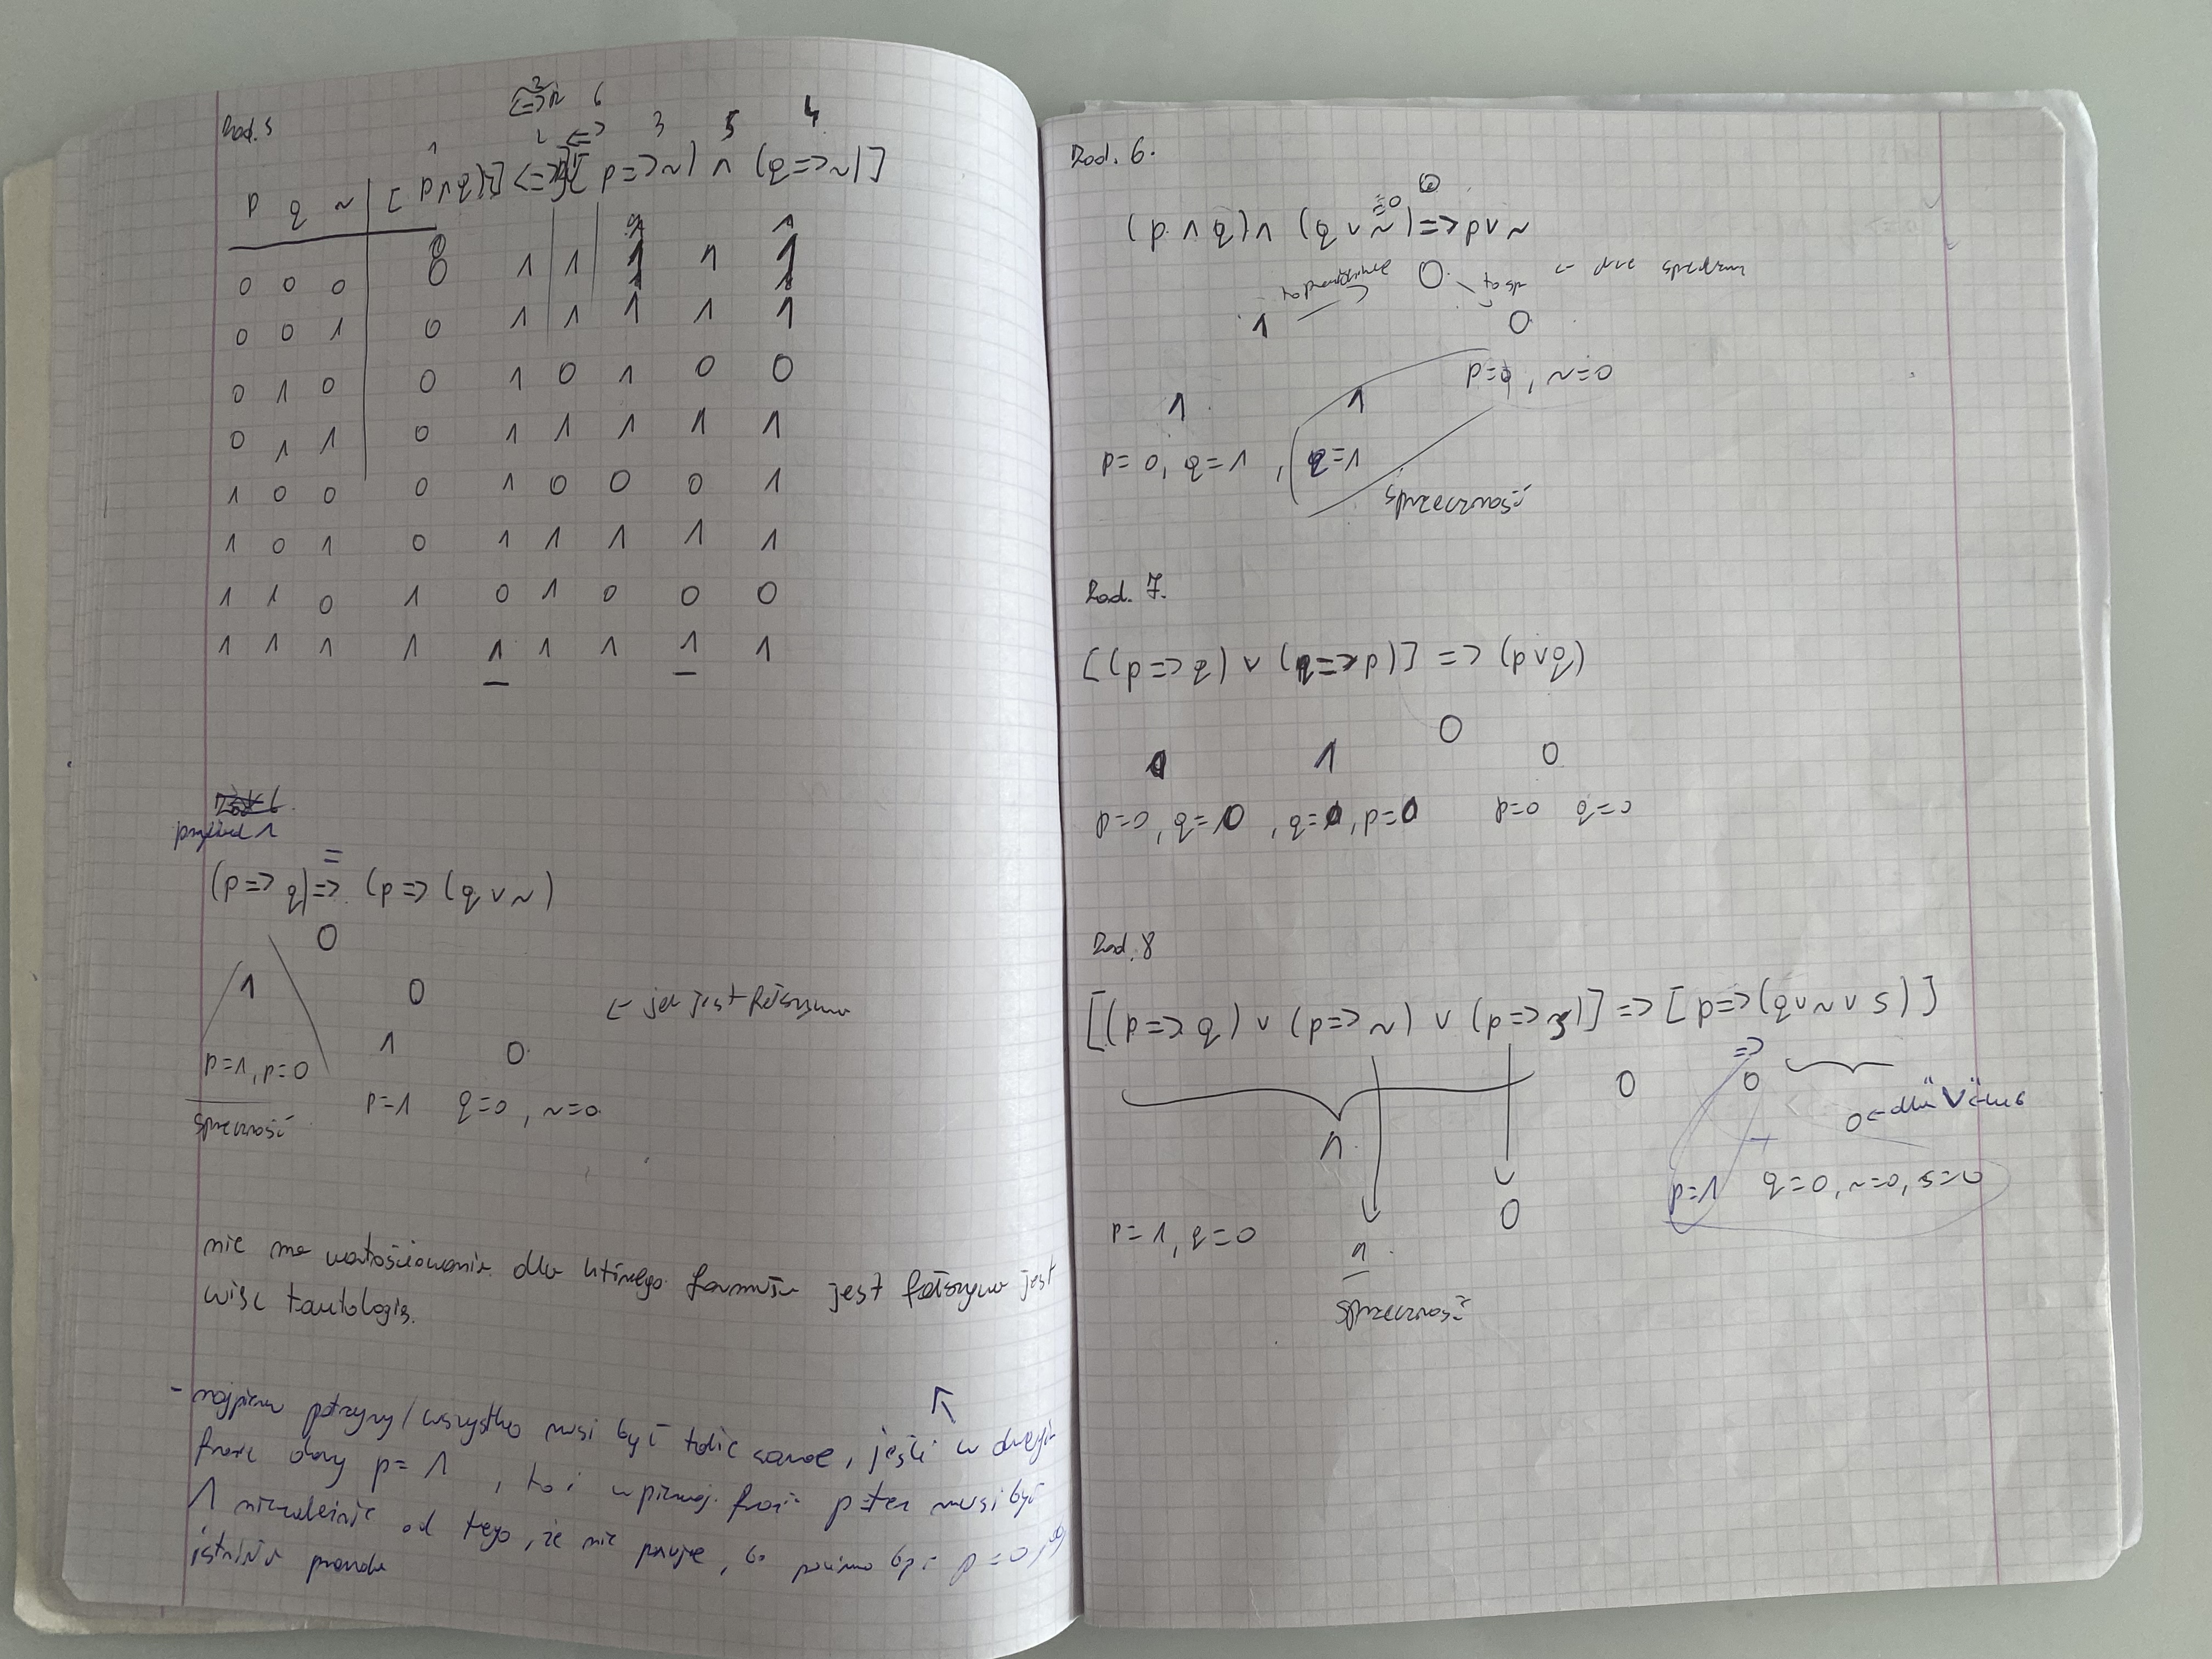 Zad. 5
<=> r 2 6
1 2 <=> 3 5 4
p q r [(p∧q) r] <=> [(p=>r) ∧ (q=>r)]
0 0 0 0 1 1 1 1 1
0 0 1 0 1 1 1 1 1
0 1 0 0 1 0 1 0 0
0 1 1 0 1 1 1 1 1
1 0 0 0 1 0 0 0 1
1 0 1 0 1 1 1 1 1
1 1 0 1 0 1 0 0 0
1 1 1 1 1 1 1 1 1
przykład 1
=
(p=>q)=> (p=>(q∨r)
0
1 0 <- jak jest fałszywa
1 0
p=1, p=0
p=1 q=0, r=0
sprzeczność
nie ma wartościowania dla którego formuła jest fałszywa jest
więc tautologią.
- najpierw patrzymy / wszystko musi być takie same, jeśli w drugim
damy p=1, to i w pierwszej p też musi być
1 niezależnie od tego, że nie pasuje, bo powinno być p=0, by
istniała prawda
Zad. 6.
=0 6
(p∧q)∧ (q∨r)=>p∨r
0 <-
1 0
p=0, r=0
1 1
p=0, q=1, q=1
sprzeczność
Zad. 7.
[(p=>q) ∨ (q=>p)] => (p∨q)
0
1 1 0
p=0, q=0, q=0, p=0 p=0 q=0
Zad. 8
[(p=>q) ∨ (p=>r) ∨ (p=>s)] => [p=>(q∨r∨s)]
=>
0 0
0<-dla "∨"
1
p=1 q=0, r=0, s=0
p=1, q=0 1 0
sprzeczność